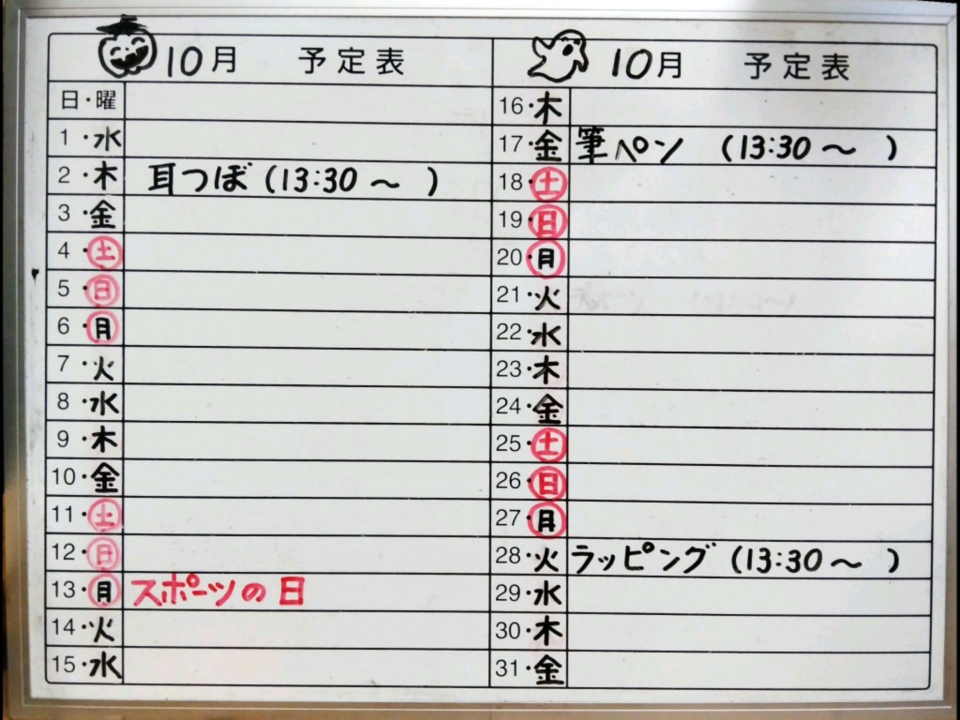 10月 予定表
日・曜
1・水
2・木 耳つぼ (13:30 ～ )
3・金
4・土
5・日
6・月
7・火
8・水
9・木
10・金
11・土
12・日
13・月 スポーツの日
14・火
15・水
10月 予定表
16・木
17・金 筆ペン (13:30 ～ )
18・土
19・日
20・月
21・火
22・水
23・木
24・金
25・土
26・日
27・月
28・火 ラッピング (13:30 ～ )
29・水
30・木
31・金